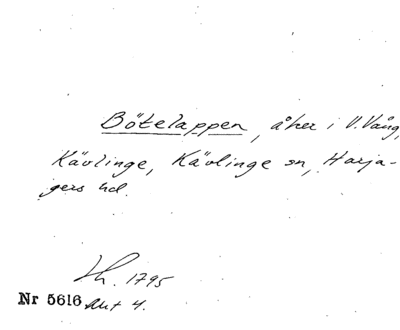 Bötelappen, åker i V. Vång,
Kävlinge, Kävlinge sn, Harja-
gers hd.
Lh. 1795
Nr 5616 Akt 4.